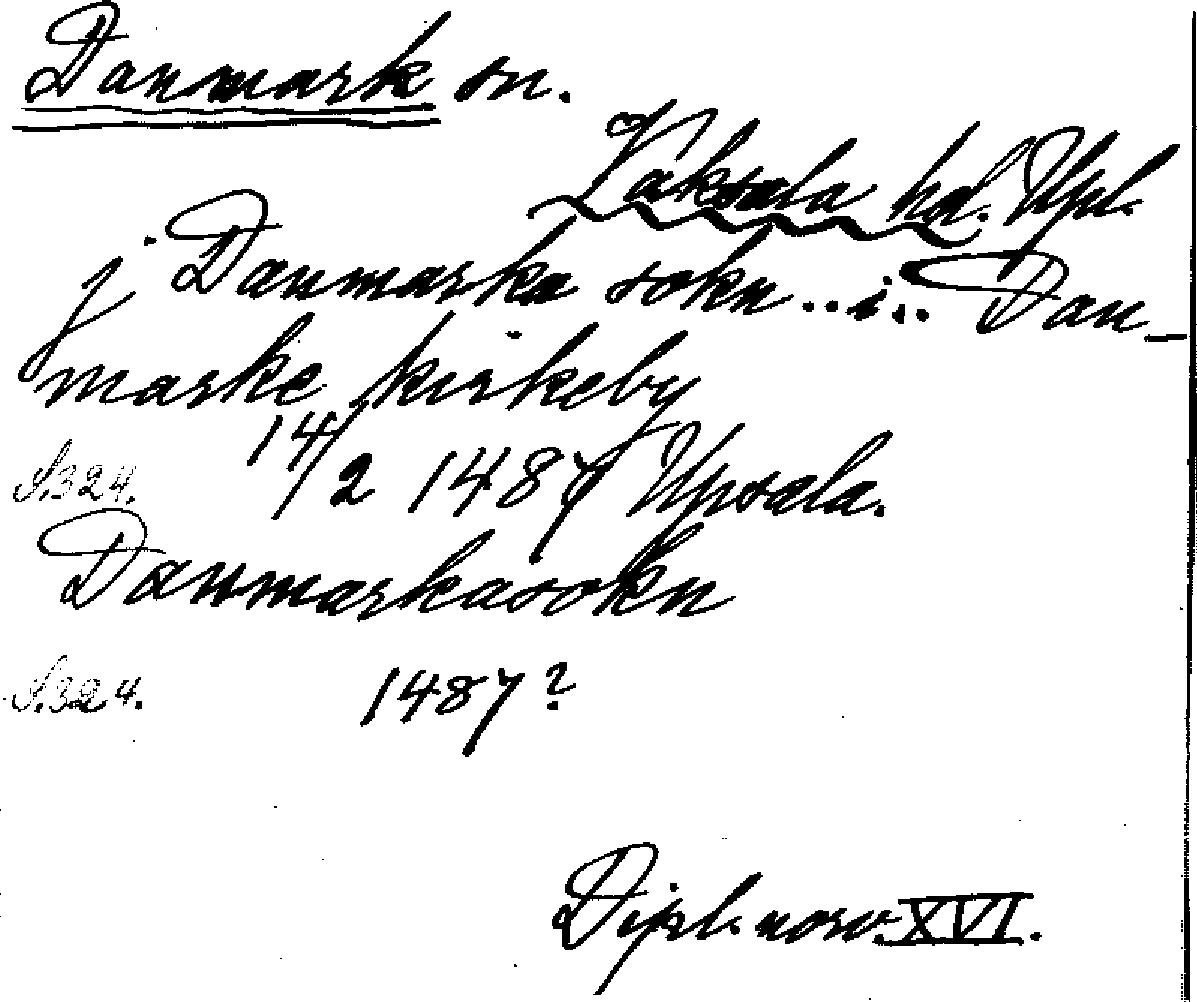 Danmark sn.
Vaksala hd. Upl.
j Danmarka sokn .. i .. Dan-
marke kirkeby
S. 324. 14/2 1487 Upsala.
Danmarkasokn
S. 324. 1487?
Dipl. norv. XVI.